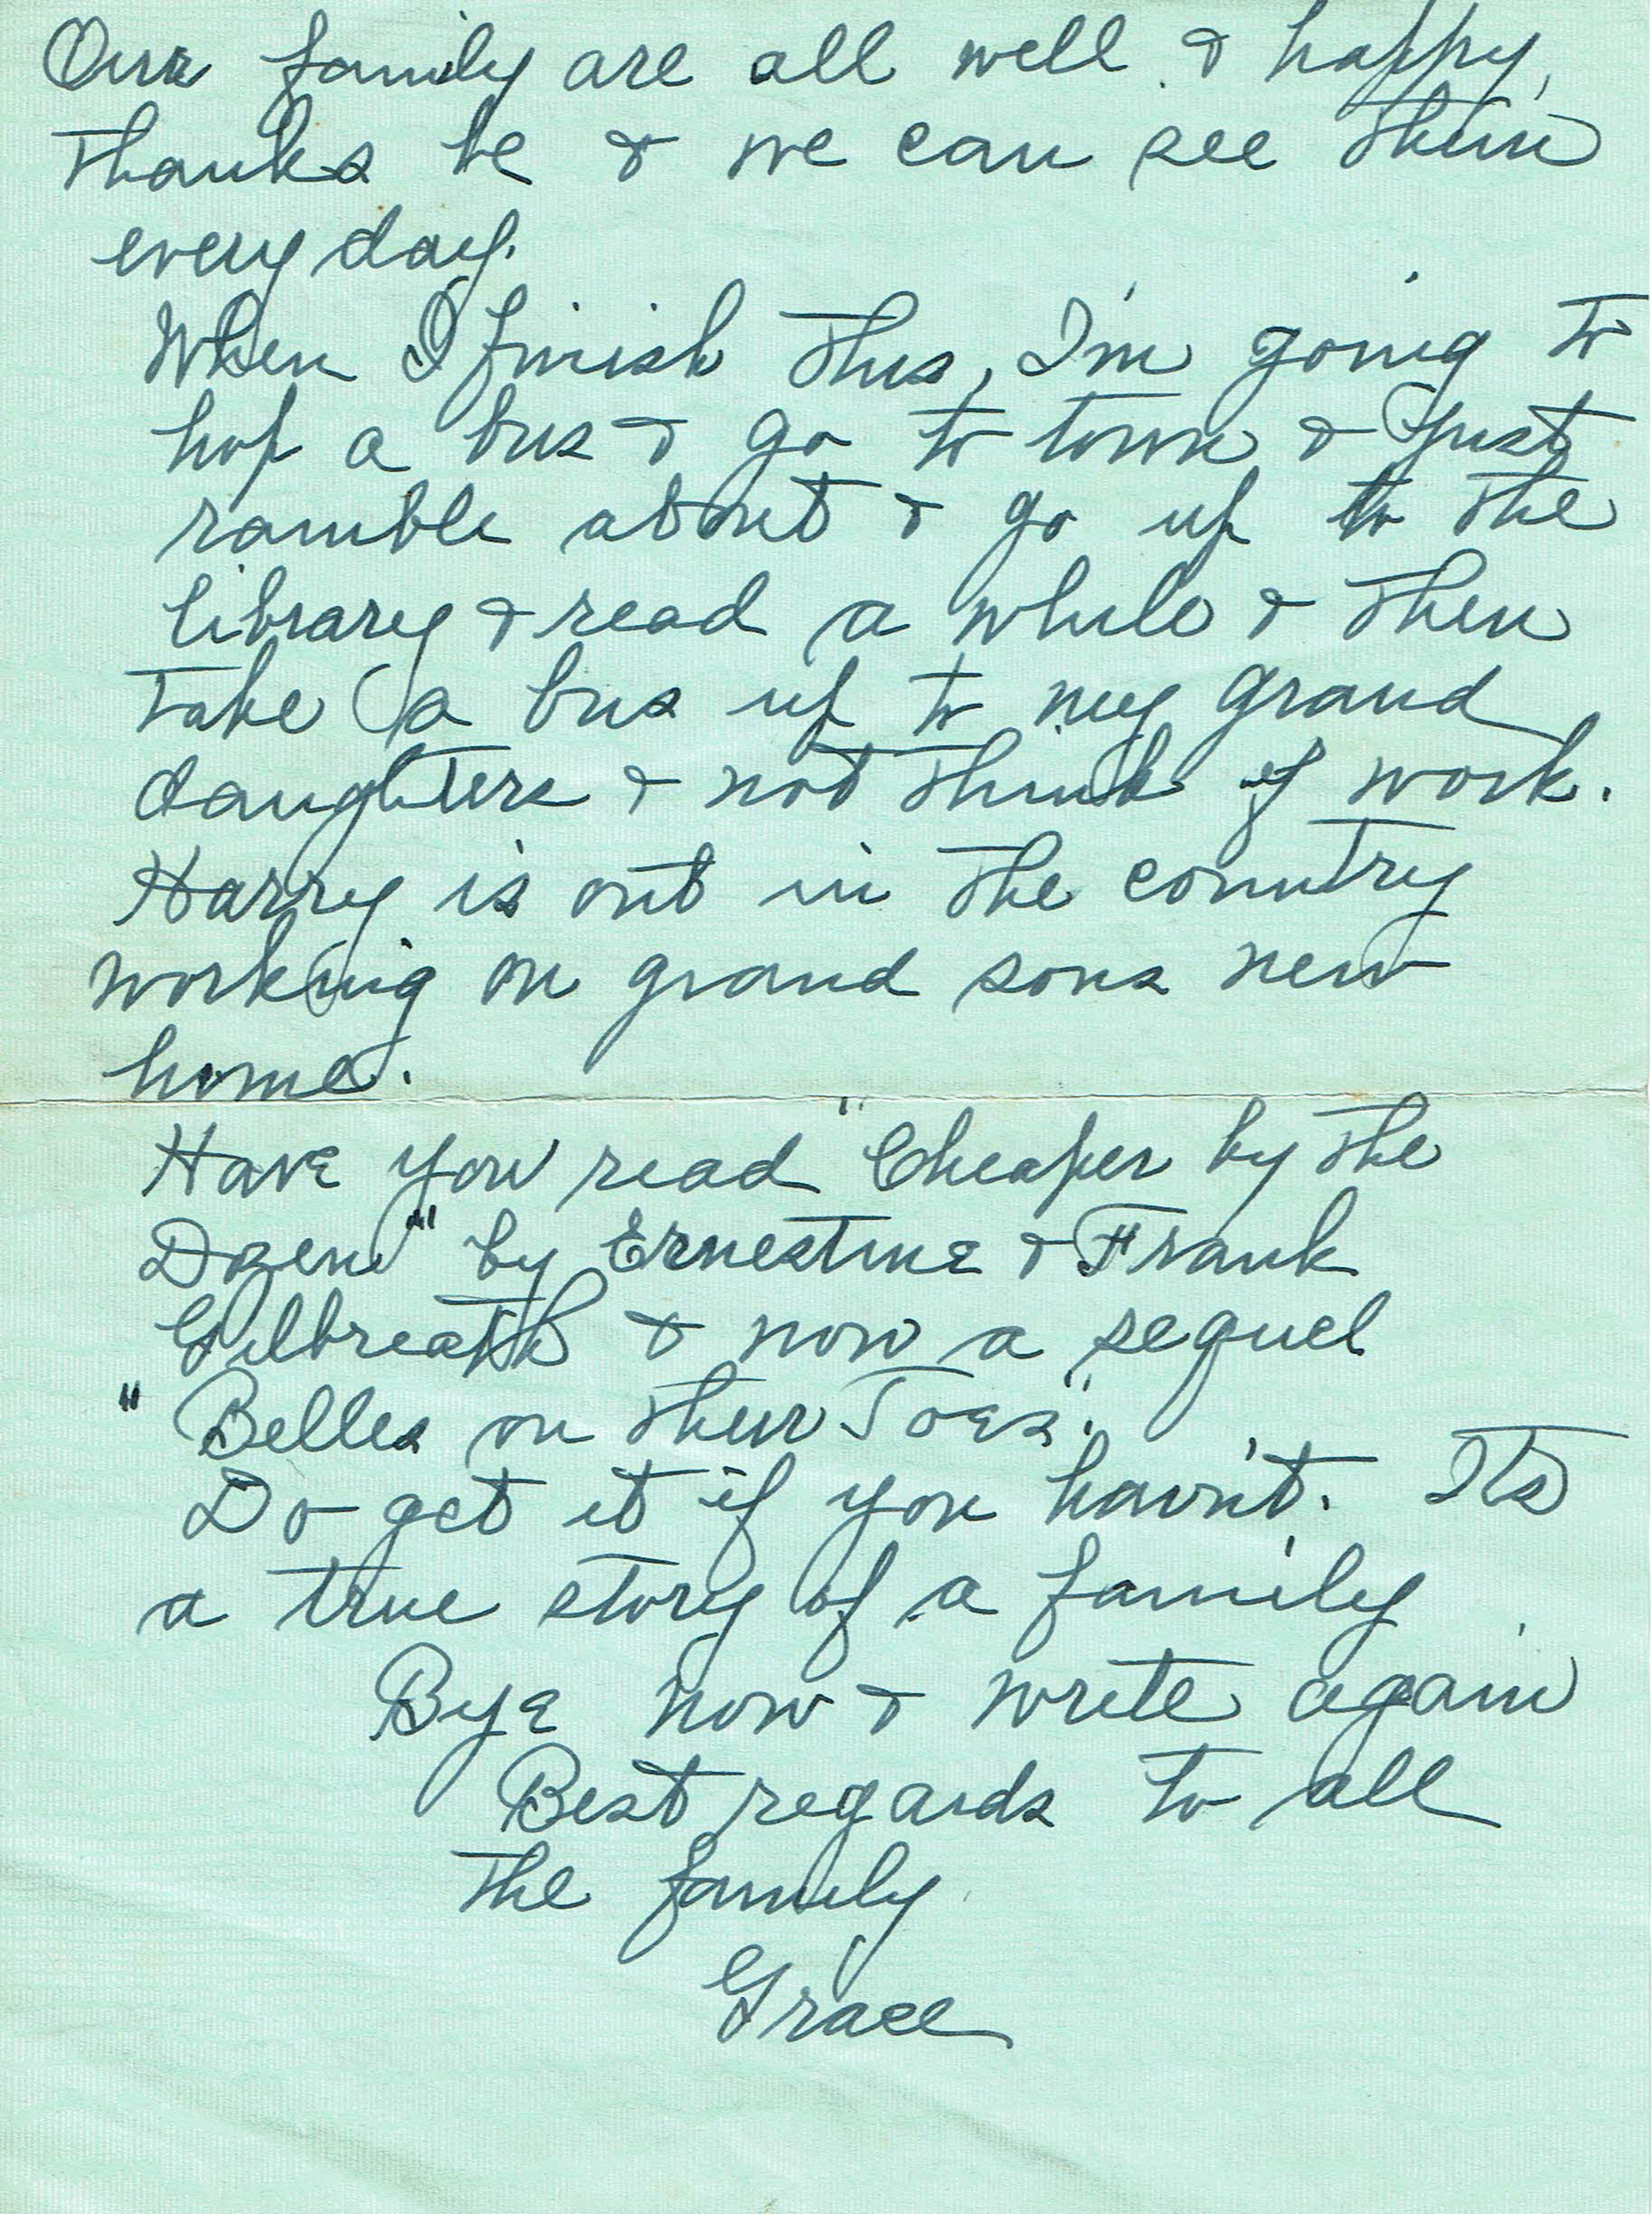 Our family are all well & happy,
thanks be & we can see them
every day.
When I finish this, I'm going to
hop a bus & go to town & just
ramble about & go up to the
library & read a while & then
take a bus up to my grand
daughters & not think of work.
Harry is out in the country
working on grand sons new
home.
Have you read "Cheaper by the
Dozen" by Ernestine & Frank
Gilbreath & now a sequel
"Belles on their Toes".
Do get it if you hav'nt. Its
a true story of a family
Bye now & write again
Best regards to all
the family
Grace